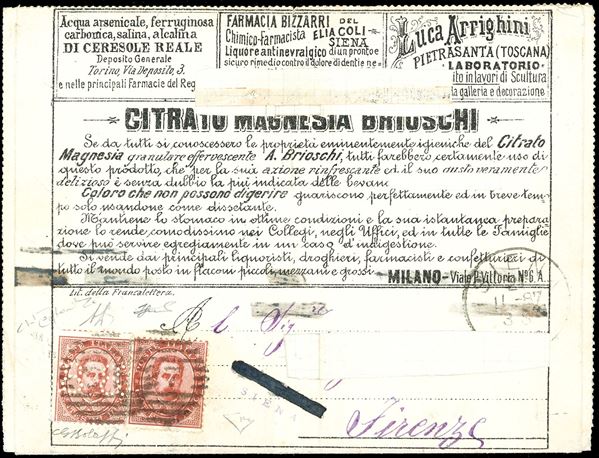 Acqua arsenicale, ferruginosa
carbonica, salina, alcalina
DI CERESOLE REALE
Deposito Generale
Torino, Via Deposito 3.
e nelle principali Farmacie del Reg
FARMACIA BIZZARRI DEL
Chimico-Farmacista ELIA COLI-
SIENA
Liquore antinevralgico di un pronto e
sicuro rimedio contro il dolore di denti e ne-
Luca Arrighini
PIETRASANTA (TOSCANA)
LABORATORIO
ito in lavori di Scultura
ta galleria e decorazione
CITRATO MAGNESIA BRIOSCHI
Se da tutti si conoscessero le proprietà eminentemente igieniche del Citrato
Magnesia granulare effervescente A. Brioschi, tutti farebbero certamente uso di
questo prodotto, che per la sua azione rinfrescante ed il suo gusto veramente
delizioso è senza dubbio la più indicata delle bevan
Coloro che non possono digerire guariscono perfettamente ed in breve tem-
po solo usandone come dissetante.
Mantiene lo stomaco in ottime condizioni e la sua istantanea prepara
zione lo rende, comodissimo nei Collegi, negli Uffici, ed in tutte le Famiglie
dove può servire egregiamente in un caso d'indigestione.
Si vende dai principali liquoristi, droghieri, farmacisti e confetturieri di
tutto il mondo posto in flaconi piccoli, mezzani e grossi. MILANO - Viale P. Vittoria N° 6. A.
Lit. della Francalettera.
11-87
Al Sig
SIENA
Firenze